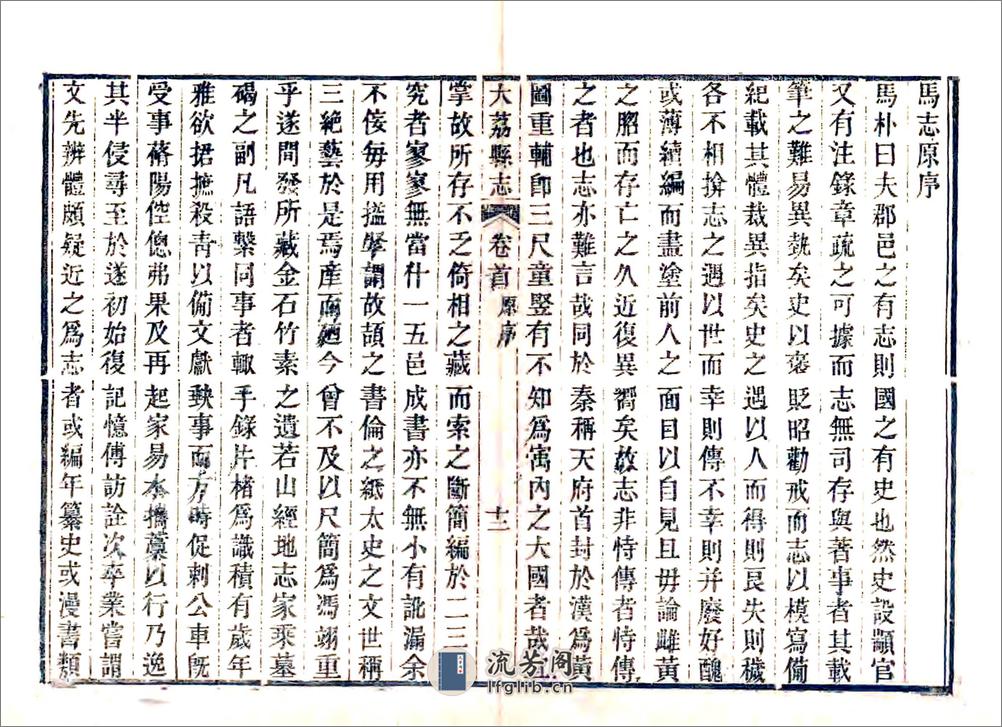 馬志原序
馬朴曰夫郡邑之有志則國之有史也然史設顓官
又有注錄章疏之可據而志無司存與著事者其載
筆之難易異矣史以褒貶昭勸戒而志以模寫備
紀載其體裁異指矣史之遇以人而得則良失則穢
各不相揜志之遇以世而幸則傳不幸則并廢好醜
或薄續編而盡塗前人之面目以自見且毋論雌黃
之脗而存亡之久近復異嚮矣故志非恃傳者恃傳
之者也志亦難言哉同於秦稱天府首封於漢為黃
圖重輔卽三尺童豎有不知為寓內之大國者哉
大荔縣志
卷首
原序
十二
掌故所存不乏倚相之藏而索之斷簡編於二三
究者寥寥無當什一五邑成書亦不無小有訛漏余
不佞每用搤擥謂故頡之書倫之紙太史之文世稱
三絕藝於是焉産而迺今曾不及以尺簡為馮翊重
乎遂間發所藏金石竹素之遺若山經地志家乘墓
碣之副凡語繫同事者輙手錄片楮為識積有歲年
雅欲捃摭殺青以備文獻軼事而方時促刺公車旣
受事脊陽倥傯弗果及再起家易水攜藁以行乃逸
其半侵尋至於遂初始復記憶傅訪詮次卒業嘗謂
文先辨體頗疑近之為志者或編年纂史或漫書類
流芳阁
lfglib.cn